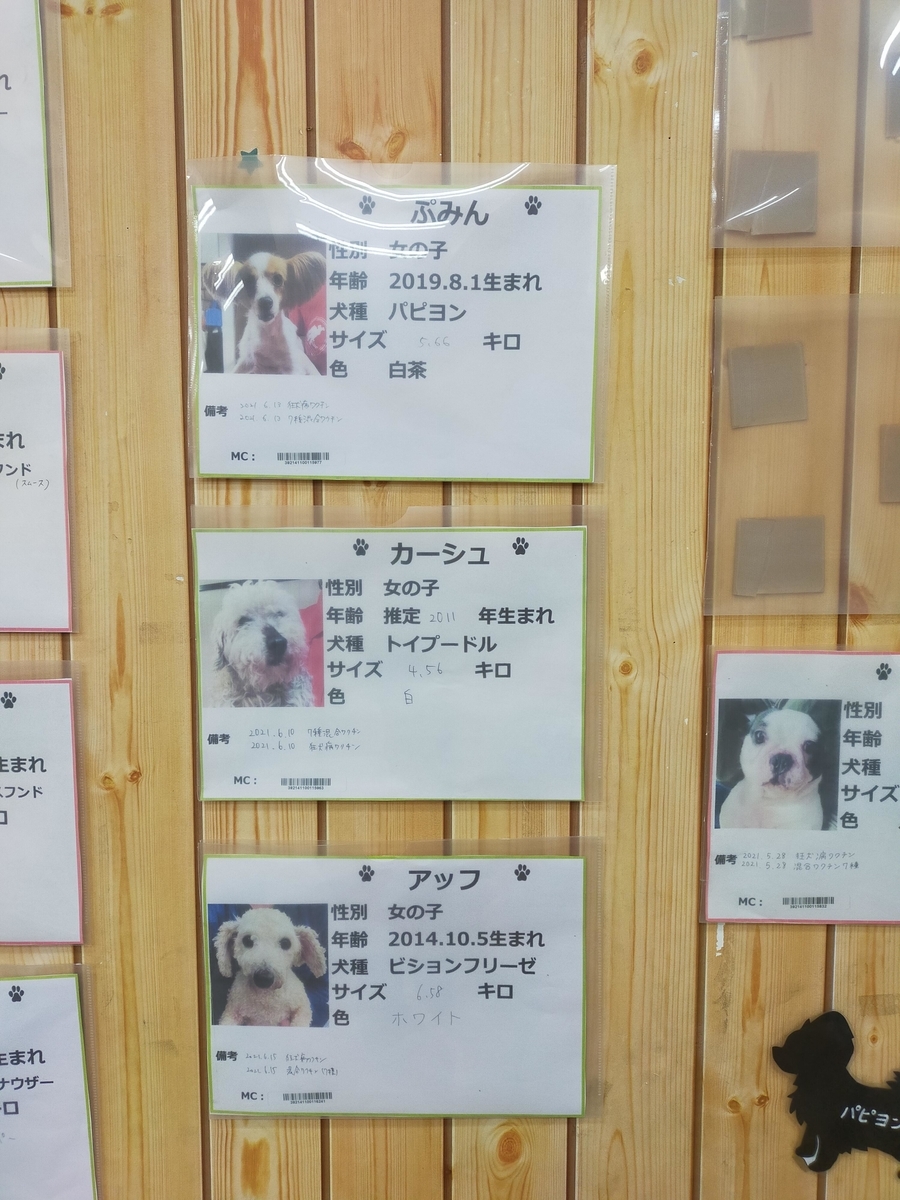 ぷみん
性別 女の子
年齢 2019.8.1生まれ
犬種 パピヨン
サイズ 5.66 キロ
色 白茶
備考 2021.6.17 狂犬病ワクチン
2021.6.17 7種混合ワクチン
MC：
カーシュ
性別 女の子
年齢 推定 2011 年生まれ
犬種 トイプードル
サイズ 4.56 キロ
色 白
備考 2021.6.10 7種混合ワクチン
2021.6.10 狂犬病ワクチン
MC：
アッフ
性別 女の子
年齢 2014.10.5生まれ
犬種 ビションフリーゼ
サイズ 6.58 キロ
色 ホワイト
備考 2021.6.15 狂犬病ワクチン
2021.6.15 混合ワクチン(7種)
MC：
まれ
フンド
(スムース)
生まれ
スフンド
ロ
生まれ
ナウザー
キロ
性別
年齢
犬種
サイズ
色
備考 2021 5.28 狂犬病ワクチン
2021 5.28 混合ワクチン7種
MC：
パピヨン